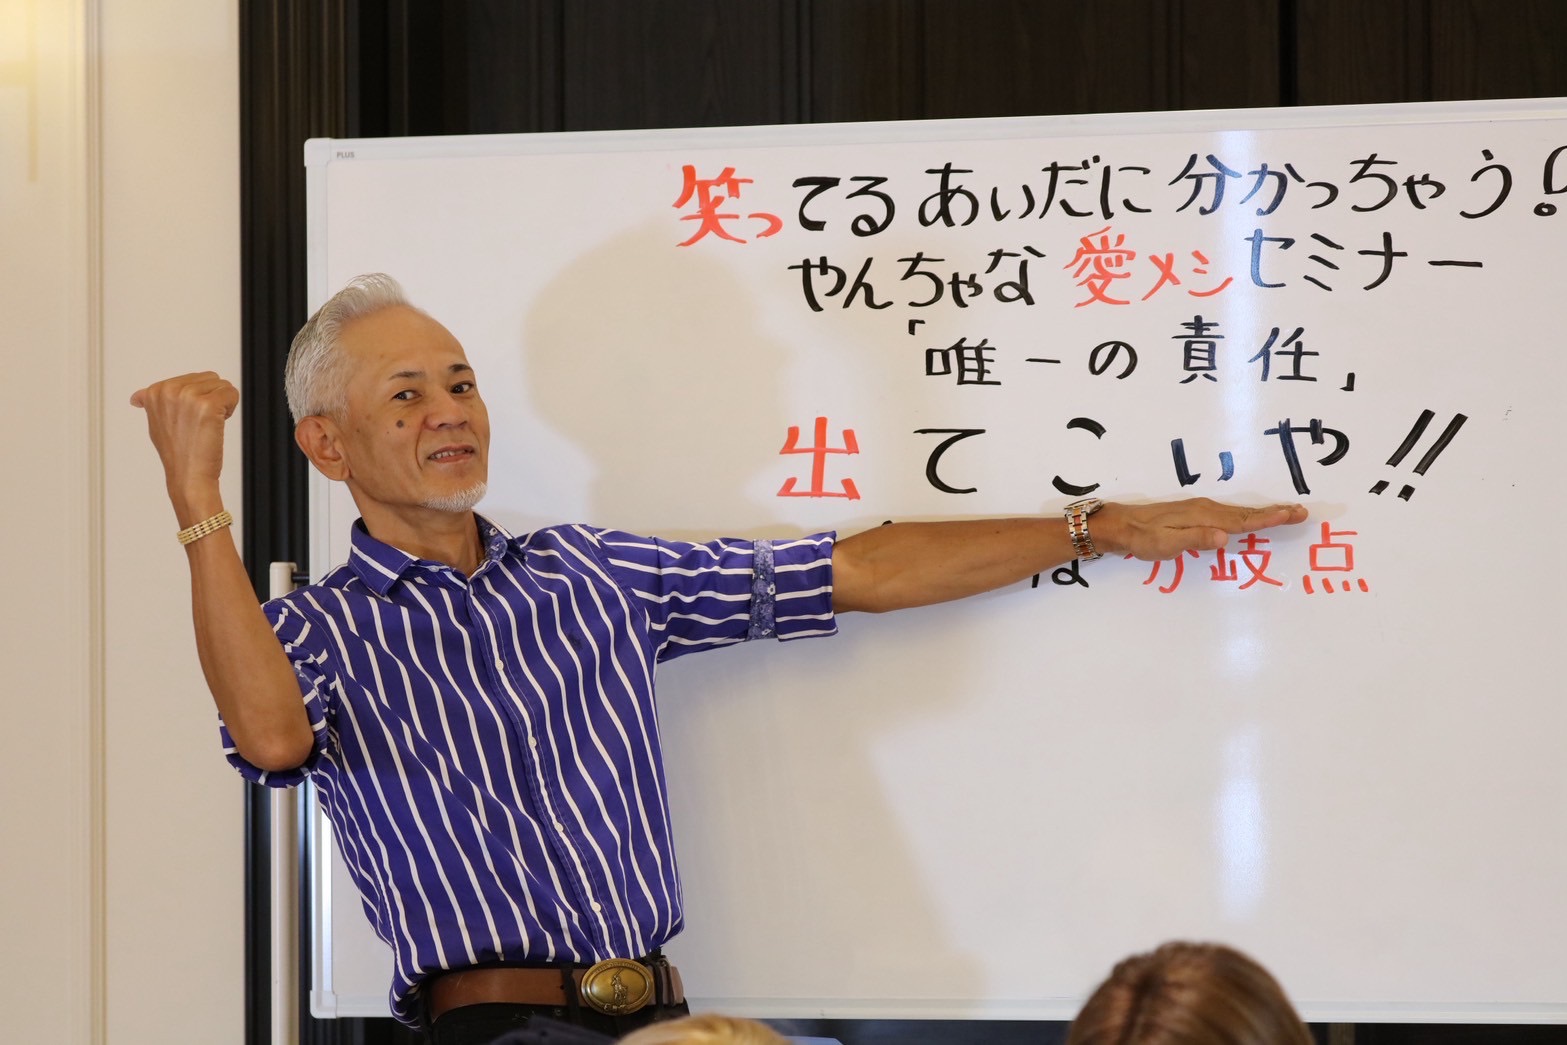 PLUS
笑ってるあいだに分かっちゃう!
やんちゃな愛メシセミナー
「唯一の責任」
出てこいや!!
な分岐点